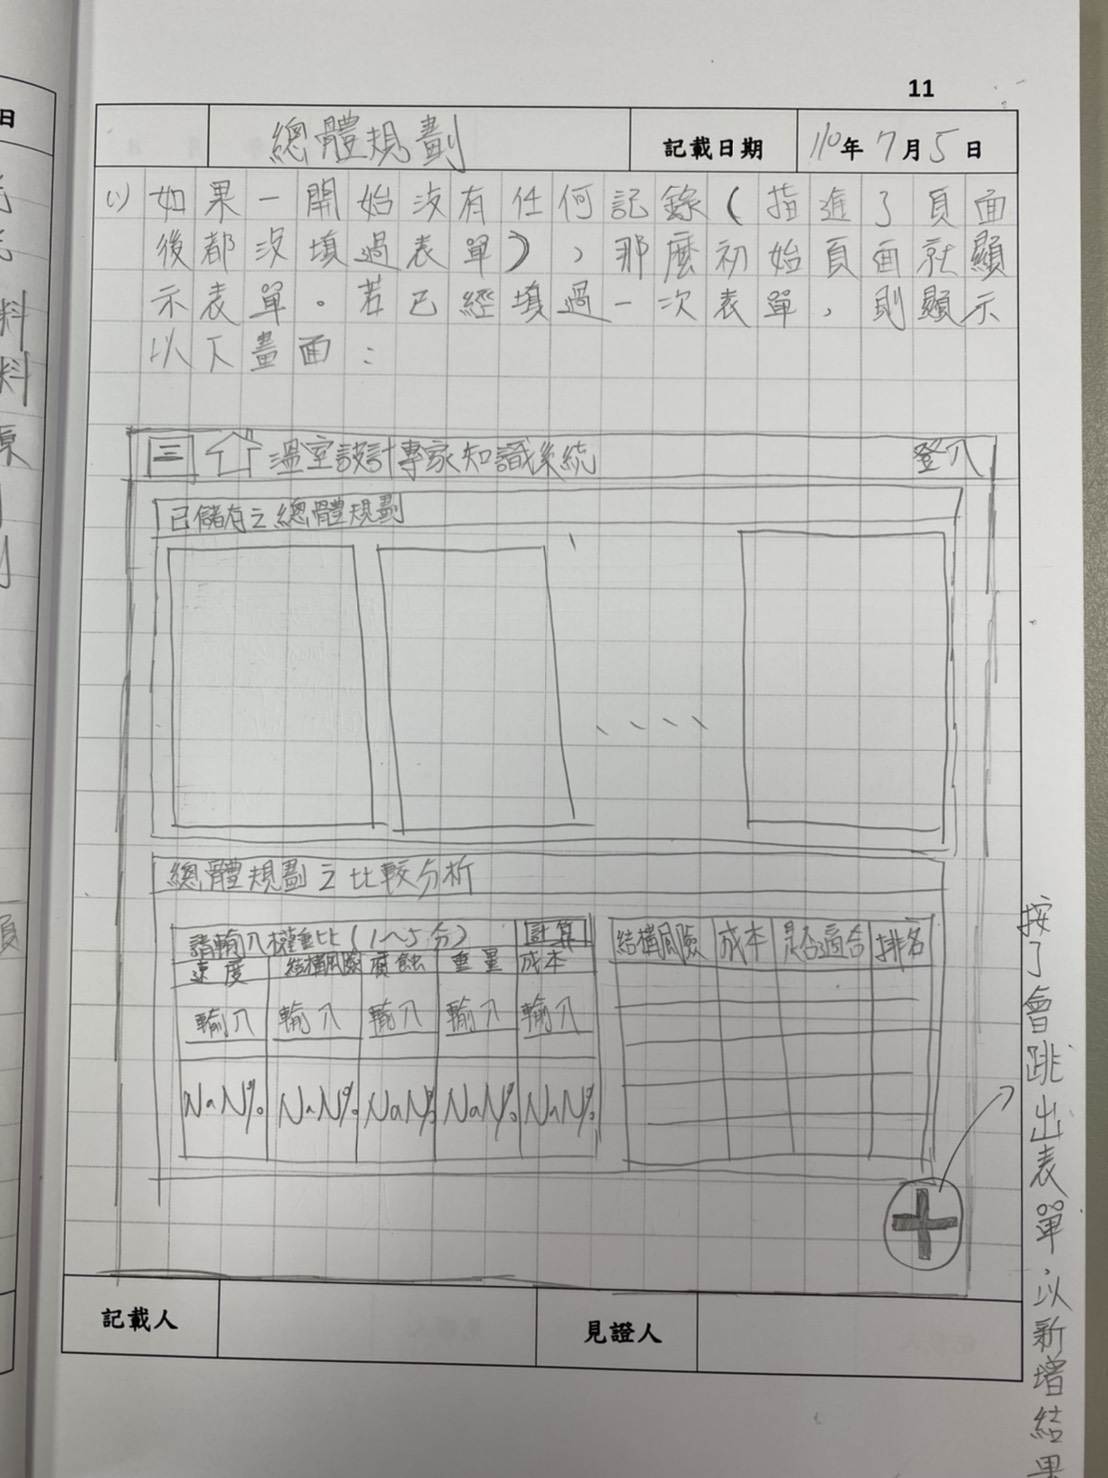 11
總體規劃
記載日期
110年7月5日
(1) 如果一開始沒有任何記錄(指進了頁面
後都沒填過表單),那麼初始頁面就顯
示表單。若已經填過一次表單,則顯示
以下畫面:
三 溫室設計專家知識系統 登入
已儲存之總體規劃
總體規劃之比較分析
請輸入權重比(1~5分) 計算
速度 結構風險 腐蝕 重量 成本
輸入 輸入 輸入 輸入 輸入
NaN% NaN% NaN% NaN% NaN%
結構風險 成本 是否適合 排名
按了會跳出表單,以新增結果
記載人
見證人
日
料
料